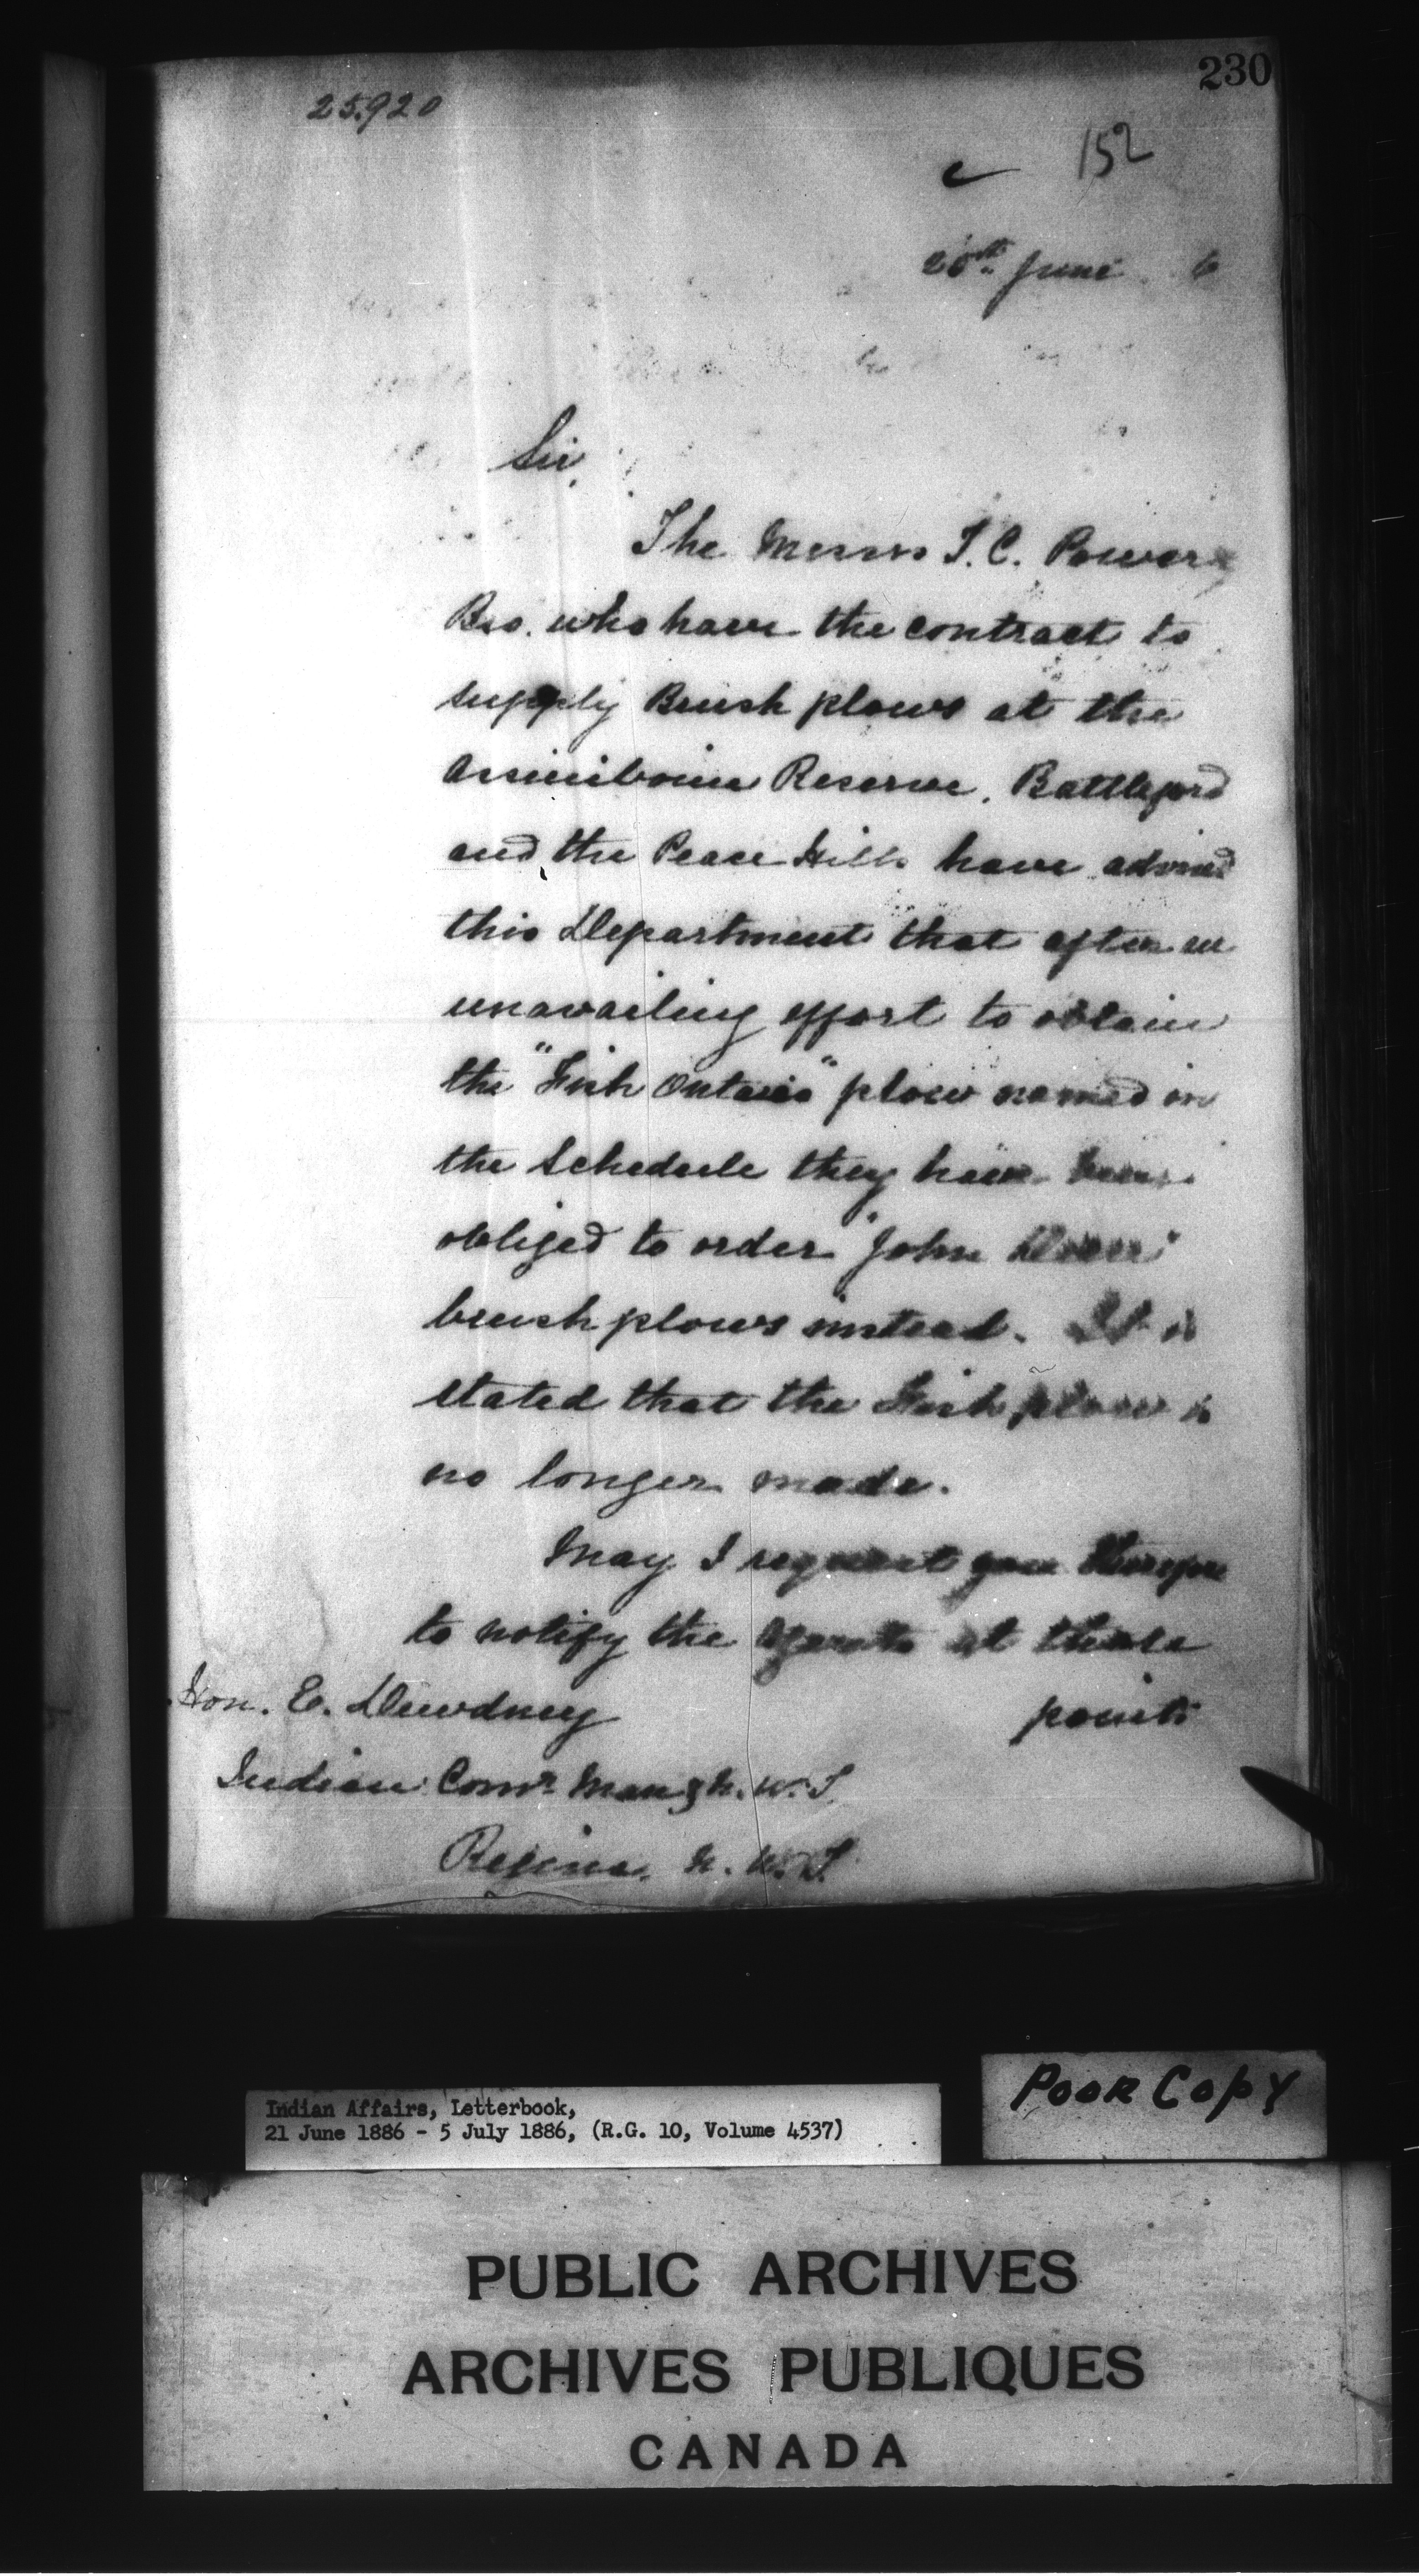 230
25.920
152
June 6
Sir,
The Messrs T. C. Power &
Bro. who have the contract to
supply Brush plows at the
Assiniboine Reserve, Battleford
and the Peace Hills have advised
this Department that after an
unavailing effort to obtain
the "Fish Ontario" plow named in
the Schedule they have been
obliged to order "John Deere"
brush plows instead. It is
stated that the Fish plow is
no longer made.
May I request you therefore
to notify the Agents at these
points
Hon. E. Dewdney
Indian Comr. Man & N. W. T.
Regina, N. W. T.
Poor Copy
Indian Affairs, Letterbook,
21 June 1886 - 5 July 1886, (R.G. 10, Volume 4537)
PUBLIC ARCHIVES
ARCHIVES PUBLIQUES
CANADA